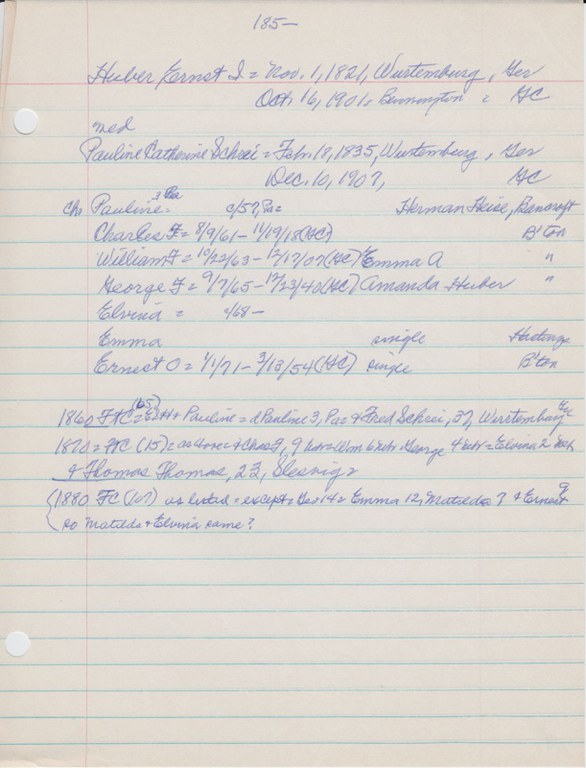 185-
Huber, Ernst I = Nov. 1, 1821, Wurtemburg, Ger
Oct. 16, 1901 = Bennington = GC
med
Pauline Catherine Schrei = Feb. 18, 1835, Wurtemburg, Ger
Dec. 10, 1907, GC
ch Pauline = c/57, Pa = Herman Heise, Bancroft
Charles F = 8/9/61 - 11/19/18 (GC) B'ton
William F = 10/22/63 - 12/17/07 (GC) Emma A "
George F = 9/7/65 - 12/23/40 (GC) Amanda Huber "
Elvina = c/68 -
Emma single Hastings
Ernest O = 4/1/71 - 3/13/54 (GC) single B'ton
1860 FTC (65) = + Pauline = d Pauline 3, Pa = + Fred Schrei, 37, Wurstemburg Ger
1870 = FTC (15) = as above = + Chas F, 9 Neb = Wm 6 Neb = George 4 Neb = Elvina 2 Neb
+ Thomas Thomas, 23, Slesvig =
(1880 FC (107) as listed = except = Geo 14 = Emma 12, Matilda 7 + Ernest 9
so Matilda + Elvina same?